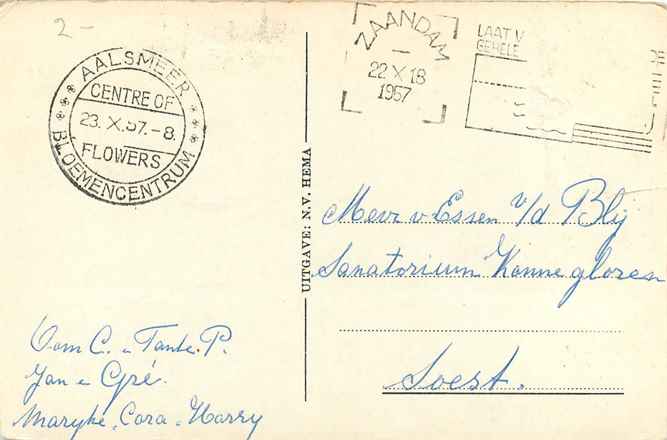 2-
AALSMEER
CENTRE OF
23. X. 57. - 8.
FLOWERS
BLOEMENCENTRUM
ZAANDAM
22 X 18
1957
LAAT V
GEHELE
UITGAVE: N.V. HEMA
Mevr v Essen v/d Blij
Sanatorium Zonnegloren
Soest.
Oom C. e Tante P.
Jan e Gré.
Maryke, Cora e Harry